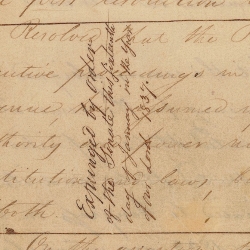 first resolution
Resolved that the P
ecutive proceedings in
enue has assumed u
thority and power no
stitution and laws, b
both.
On the question
Expunged by order
of the Senate this sixteenth
day of January in the year
of our Lord 1837.